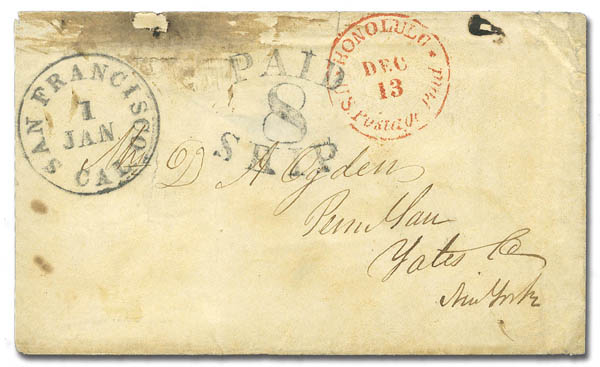 SAN FRANCISCO CAL.
1
JAN
PAID
8
SHIP
HONOLULU
DEC
13
U.S. Postage Paid
D A Ogden
Penn Yan
Yates Co
New York